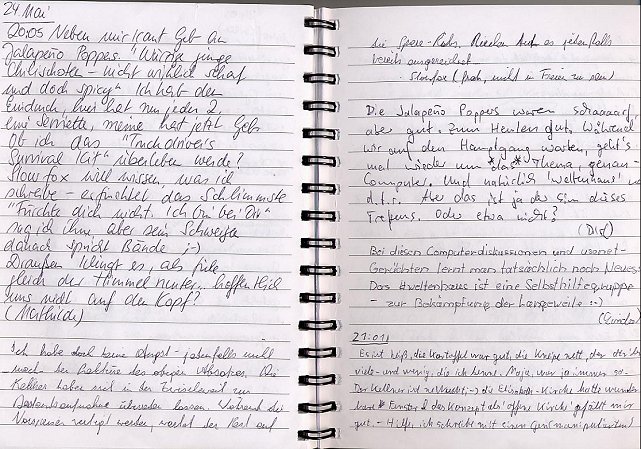 24. Mai
20:05 Neben mir kämpft Gabi an
Jalapeño Poppers. "Würzige junge
Chilischoten - nicht wirklich scharf
und doch spicy" Ich hab den
Eindruck, hier hat nun jeden 2.
eine Serviette, meine hat jetzt Gabi
Ob ich das "Truckdriver's
Survival Kit" überleben werde?
Slowfox will wissen, was ich
schreibe - befürchtet das Schlimmste
"Fürchte dich nicht. Ich bin bei Dir"
sag ich ihm aber sein Schweigen
danach spricht Bände ;-)
Draußen klingt es, als fiele
gleich der Himmel runter. hoffentlich
uns nicht auf den Kopf?
(Mathilde)
Ich habe doch keine Angst - jedenfalls nicht
nach der Lektüre des obigen Absatzes. Die
Kellner haben sich in der Zwischenzeit zur
überreden lassen. Während die
Vorspeisen verteilt werden, wartet der Rest auf
die Spare-Ribs, Riechen tut es jedenfalls
bereits ausgezeichnet.
- Slowfox (froh, nicht im Freien zu sein)
Die Jalapeño Poppers waren schaaaarf,
aber gut. Zum Heulen gut. Während
wir auf den Hauptgang warten, geht's
mal wieder um *das* Thema, genau -
Computer. Und natürlich 'weltenhaus' und
d.t.r. Aber das ist ja der Sinn dieses
Treffens. Oder etwa nicht?
Bei diesen Computerdiskussionen und usenet-
Gerüchten lernt man tatsächlich noch Neues:
Das #weltenhaus ist eine Selbsthilfegruppe
- zur Bekämpfung der Langeweile :-)
21:01
Es ist heiß, die Kartoffel war gut, die Kneipe nett, der
viele - und wenig, die ich kenne. Maja, war ja immer so -
Der Kellner ist ;-) die Elisabeth-Kirche hatte wunder
bare Fenster & das Konzept als 'offene Kirche' gefällt mir
gut. - Hilfe, ich schreibe mit einem